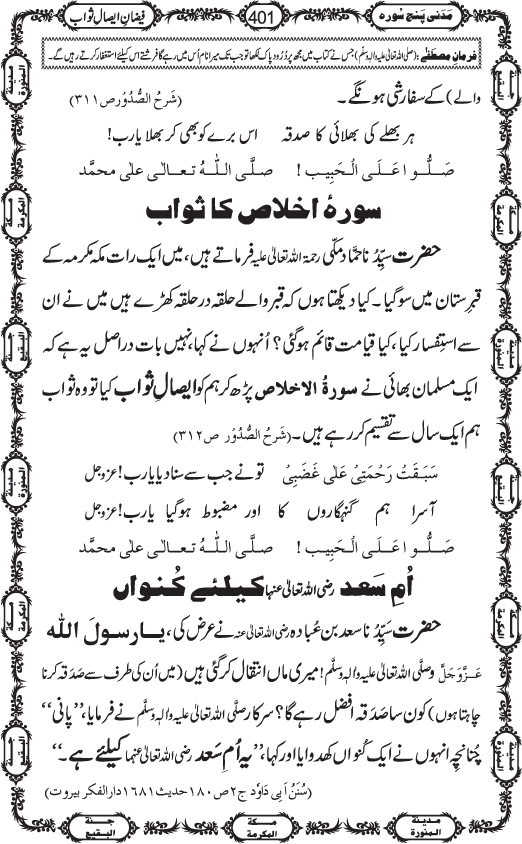 مَدَنی پنج سورہ
401
فیضانِ ایصالِ ثواب
فرمانِ مصطَفٰے : (صلی اللہ تعالیٰ علیہ والہ وسلّم) جس نے کتاب میں مجھ پر دُرُود پاک لکھا تو جب تک میرا نام اُس میں رہے گا فرشتے اس کیلئے استغفار کرتے رہیں گے۔
والے) کے سفارشی ہونگے۔ (شَرحُ الصُّدُور ص ۳۱۱)
ہر بھلے کی بھلائی کا صدقہ اس برے کو بھی کر بھلا یا رب!
صَلُّوا عَلَی الْحَبِیب ! صلَّی اللہُ تعالٰی علٰی محمَّد
سورۂ اخلاص کا ثواب
حضرت سیِّدُنا حمّاد مکّی رحمۃ اللہ تعالیٰ علیہ فرماتے ہیں، میں ایک رات مکّہ مکرّمہ کے
قبرِستان میں سو گیا۔ کیا دیکھتا ہوں کہ قبر والے حلقہ در حلقہ کھڑے ہیں میں نے ان
سے استِفسار کیا، کیا قیامت قائم ہو گئی؟ اُنہوں نے کہا، نہیں بات دراصل یہ ہے کہ
ایک مسلمان بھائی نے سورۃُ الاخلاص پڑھ کر ہم کو ایصالِ ثواب کیا تو وہ ثواب
ہم ایک سال سے تقسیم کر رہے ہیں۔ (شَرحُ الصُّدُور ص ۳۱۲)
سَبَقَتْ رَحْمَتِیْ عَلٰی غَضَبِیْ تو نے جب سے سنا دیا یا رب! عزوجل
آسرا ہم گنہگاروں کا اور مضبوط ہوگیا یا رب! عزوجل
صَلُّوا عَلَی الْحَبِیب ! صلَّی اللہُ تعالٰی علٰی محمَّد
اُمِ سَعد رضی اللہ تعالیٰ عنہا کیلئے کُنواں
حضرت سیِّدُنا سعد بن عُبادہ رضی اللہ تعالیٰ عنہ نے عرض کی، یارسولَ اللہ
عَزَّوَجَلَّ وصلَّی اللہ تعالیٰ علیہ والہٖ وسلَّم! میری ماں انتقال کر گئی ہیں (میں اُن کی طرف سے صَدَقہ کرنا
چاہتا ہوں) کون سا صَدَقہ افضل رہے گا؟ سرکار صلَّی اللہ تعالیٰ علیہ والہٖ وسلَّم نے فرمایا، ’’پانی‘‘
چُنانچِہ انہوں نے ایک کُنواں کھدوایا اور کہا، ’’یہ اُمِ سَعد رضی اللہ تعالیٰ عنہا کیلئے ہے۔‘‘
(سُنَنُ اَبِی دَاوٗد ج۲ ص۱۸۰ حدیث ۱۶۸۱ دار الفکر بیروت)
جنۃ البقیع
مکۃ المکرمۃ
مدینۃ المنورۃ